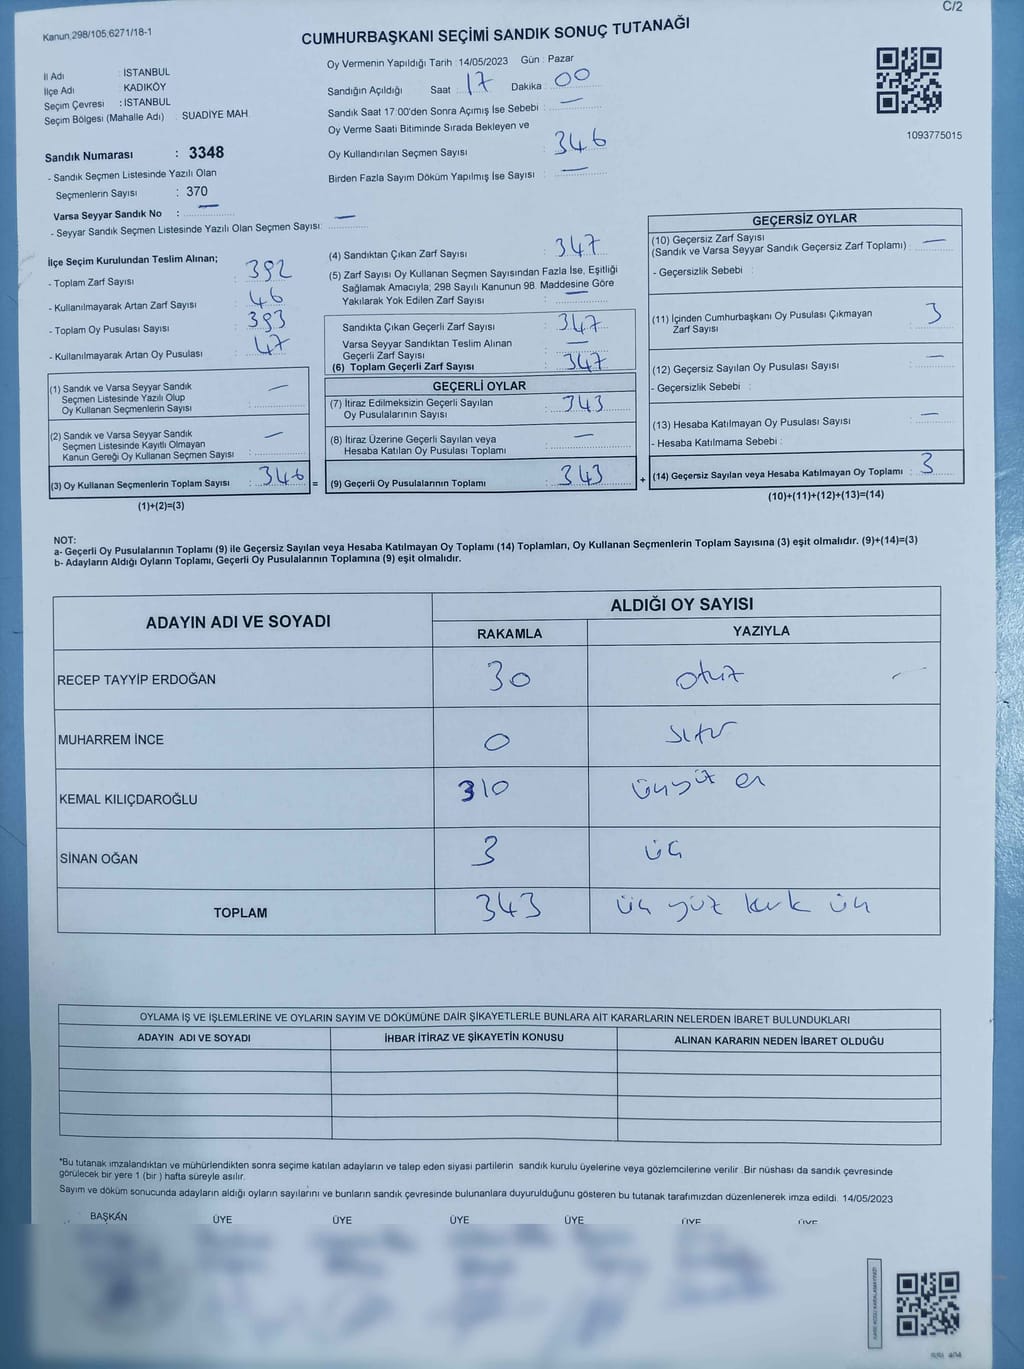 C/2
Kanun;298/105;6271/18-1
CUMHURBAŞKANI SEÇİMİ SANDIK SONUÇ TUTANAĞI
İl Adı : İSTANBUL
İlçe Adı : KADIKÖY
Seçim Çevresi : İSTANBUL
Seçim Bölgesi (Mahalle Adı) : SUADİYE MAH.
Sandık Numarası : 3348
- Sandık Seçmen Listesinde Yazılı Olan
Seçmenlerin Sayısı : 370
Varsa Seyyar Sandık No : —
- Seyyar Sandık Seçmen Listesinde Yazılı Olan Seçmen Sayısı: —
Oy Vermenin Yapıldığı Tarih :14/05/2023 Gün : Pazar
Sandığın Açıldığı Saat 17 Dakika 00
Sandık Saat 17:00'den Sonra Açımış İse Sebebi : —
Oy Verme Saati Bitiminde Sırada Bekleyen ve
Oy Kullandırılan Seçmen Sayısı : 346
Birden Fazla Sayım Döküm Yapılmış İse Sayısı : —
1093775015
İlçe Seçim Kurulundan Teslim Alınan;
- Toplam Zarf Sayısı : 392
- Kullanılmayarak Artan Zarf Sayısı : 46
- Toplam Oy Pusulası Sayısı : 393
- Kullanılmayarak Artan Oy Pusulası : 47
(1) Sandık ve Varsa Seyyar Sandık
Seçmen Listesinde Yazılı Olup
Oy Kullanan Seçmenlerin Sayısı : —
(2) Sandık ve Varsa Seyyar Sandık
Seçmen Listesinde Kayıtlı Olmayan
Kanun Gereği Oy Kullanan Seçmen Sayısı : —
(3) Oy Kullanan Seçmenlerin Toplam Sayısı : 346 =
(1)+(2)=(3)
(4) Sandıktan Çıkan Zarf Sayısı : 347
(5) Zarf Sayısı Oy Kullanan Seçmen Sayısından Fazla İse, Eşitliği
Sağlamak Amacıyla; 298 Sayılı Kanunun 98. Maddesine Göre
Yakılarak Yok Edilen Zarf Sayısı : —
Sandıkta Çıkan Geçerli Zarf Sayısı : 347
Varsa Seyyar Sandıktan Teslim Alınan
Geçerli Zarf Sayısı : —
(6) Toplam Geçerli Zarf Sayısı : 347
GEÇERLİ OYLAR
(7) İtiraz Edilmeksizin Geçerli Sayılan
Oy Pusulalarının Sayısı : 343
(8) İtiraz Üzerine Geçerli Sayılan veya
Hesaba Katılan Oy Pusulası Toplamı : —
(9) Geçerli Oy Pusulalarının Toplamı : 343 +
GEÇERSİZ OYLAR
(10) Geçersiz Zarf Sayısı
(Sandık ve Varsa Seyyar Sandık Geçersiz Zarf Toplamı) : —
- Geçersizlik Sebebi :
(11) İçinden Cumhurbaşkanı Oy Pusulası Çıkmayan
Zarf Sayısı : 3
(12) Geçersiz Sayılan Oy Pusulası Sayısı : —
- Geçersizlik Sebebi :
(13) Hesaba Katılmayan Oy Pusulası Sayısı : —
- Hesaba Katılmama Sebebi :
(14) Geçersiz Sayılan veya Hesaba Katılmayan Oy Toplamı : 3
(10)+(11)+(12)+(13)=(14)
NOT:
a- Geçerli Oy Pusulalarının Toplamı (9) ile Geçersiz Sayılan veya Hesaba Katılmayan Oy Toplamı (14) Toplamları, Oy Kullanan Seçmenlerin Toplam Sayısına (3) eşit olmalıdır. (9)+(14)=(3)
b- Adayların Aldığı Oyların Toplamı, Geçerli Oy Pusulalarının Toplamına (9) eşit olmalıdır.
ADAYIN ADI VE SOYADI ALDIĞI OY SAYISI
RAKAMLA YAZIYLA
RECEP TAYYİP ERDOĞAN 30 otuz
MUHARREM İNCE 0 sıfır
KEMAL KILIÇDAROĞLU 310 üçyüz on
SİNAN OĞAN 3 üç
TOPLAM 343 üç yüz kırk üç
OYLAMA İŞ VE İŞLEMLERİNE VE OYLARIN SAYIM VE DÖKÜMÜNE DAİR ŞİKAYETLERLE BUNLARA AİT KARARLARIN NELERDEN İBARET BULUNDUKLARI
ADAYIN ADI VE SOYADI İHBAR İTİRAZ VE ŞİKAYETİN KONUSU ALINAN KARARIN NEDEN İBARET OLDUĞU
*Bu tutanak imzalandıktan ve mühürlendikten sonra seçime katılan adayların ve talep eden siyasi partilerin sandık kurulu üyelerine veya gözlemcilerine verilir. Bir nüshası da sandık çevresinde
görülecek bir yere 1 (bir ) hafta süreyle asılır.
Sayım ve döküm sonucunda adayların aldığı oyların sayılarını ve bunların sandık çevresinde bulunanlara duyurulduğunu gösteren bu tutanak tarafımızdan düzenlenerek imza edildi. 14/05/2023
BAŞKAN ÜYE ÜYE ÜYE ÜYE ÜYE ÜYE